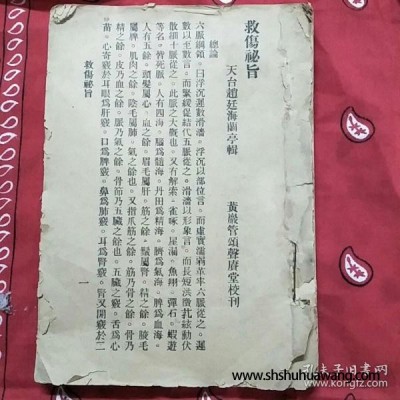 救傷祕旨
天台趙廷海蘭亭輯
黃巖管頌聲賡堂校刊
總論
六脈綱領。曰浮沉遲數滑濇。浮沉以部位言。而虛實濡弱革牢六脈從之。遲
數以至數言。而緊緩促結代五脈從之。滑濇以形象言。而長短洪微芤弦動伏
散細十脈從之。此脈之大概也。又有解索。雀啄。屋漏。魚翔。彈石。蝦遊
等名。皆死脈。人有四海。腦爲髓海。丹田爲精海。臍爲氣海。脾爲血海。
人有五餘。頭髮屬心。血之餘。眉毛屬肝。筋之餘。鬚屬腎。精之餘。腋毛
屬脾。肉之餘。陰毛屬肺。氣之餘也。又指爪筋之餘。筋乃骨之餘。骨乃
精之餘。皮乃血之餘。脈乃氣之餘。骨節乃五臟之餘也。五臟之竅。舌爲心
苗。心寄竅於耳眼爲肝竅。口爲脾竅。鼻爲肺竅。耳爲腎竅。腎又開竅於二
救傷祕旨
一
www.shshuhuawang.com
孔夫子旧書网
www.kongfz.com